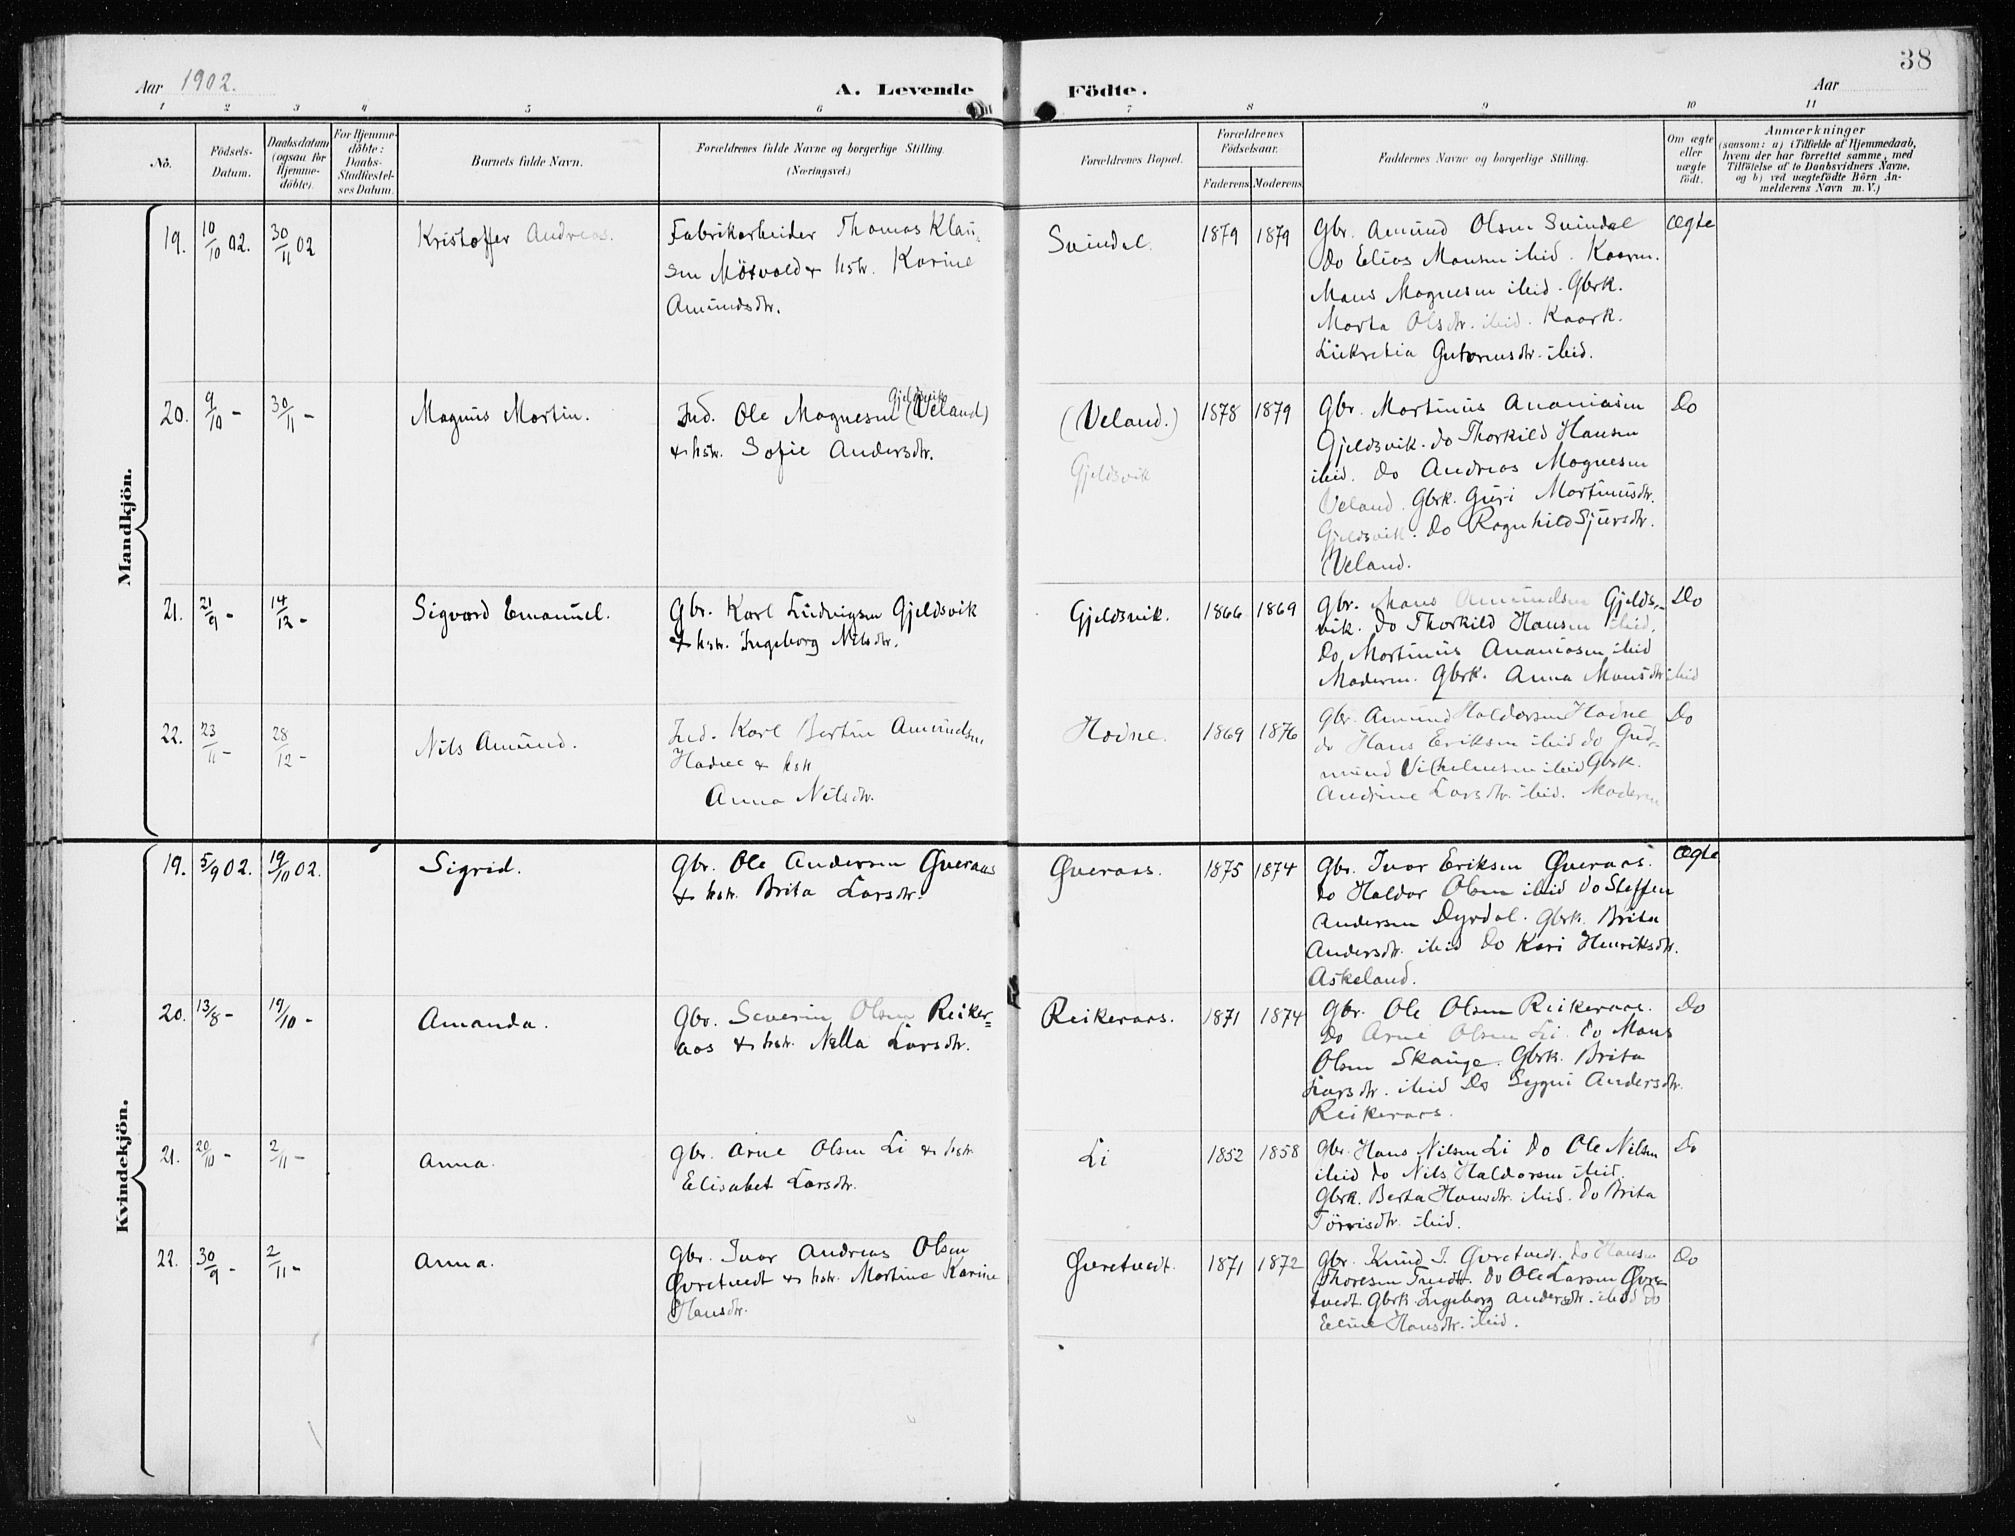 38
Aar 1902.
A. Levende Födte.
Aar
1 2 3 4 5 6 7 8 9 10 11
No.
Födsels-Datum.
Daabsdatum (ogsaa for Hjemme-döbte).
For Hjemme-döbte: Daabs-Stadfæstel-ses Datum.
Barnets fulde Navn.
Forældrenes fulde Navne og borgerlige Stilling. (Næringsvei.)
Forældrenes Bopæl.
Forældrenes Födselsaar.
Faderens Moderens
Faddernes Navne og borgerlige Stilling.
Om ægte eller uægte födt.
Anmærkninger
(saasom: a) i Tilfælde af Hjemmedaab,
hvem der har forrettet samme, med
Tilföielse af to Daabsvidners Navne,
og b) ved uægtefödte Börn An-
melderens Navn m. V.)
Mandkjön.
19. 10/10 02. 30/11 02 Kristoffer Andreas.
Fabrikarbeider Thomas Klau-
sen Mösvold & hstr. Karine
Amundsdtr.
Svindal. 1879 1879
Gbr. Amund Olsen Svindal
Do Elias Monsen ibid. Kaarm.
Mons Magnesen ibid. Gbrk.
Marta Olsdtr. ibid. Kaark.
Lükretia Gutormsdtr. ibid.
Ægte
20. 9/10 - 30/11 - Magnus Martin.
Gjeldsvik
Ind. Ole Magnesen (Veland)
& hstr. Sofie Andersdtr.
(Veland.)
Gjeldsvik
1878 1879
Gbr. Martinus Ananiasen
Gjeldsvik. do Thorkild Hansen
ibid. do Andreas Magnesen
Veland. Gbrk. Guri Martinusdtr.
Gjeldsvik. Do Ragnhild Sjursdtr.
Veland.
Do
21. 21/9 - 14/12 - Sigvard Emanuel.
Gbr. Karl Ludvigsen Gjeldsvik
& hstr. Ingeborg Nilsdtr.
Gjeldsvik. 1866 1869
Gbr. Mons Amundsen Gjelds-
vik. do Thorkild Hansen ibid.
Do Martinus Ananiasen ibid
Moderen. Gbrk. Anna Monsdtr ibid
Do
22. 23/11 - 28/12 - Nils Amund.
Ind. Karl Bertin Amundsen
Hodne & hstr
Anna Nilsdtr.
Hodne. 1869 1876
Gbr. Amund Haldorsen Hodne
do Hans Eriksen ibid do Gud-
mund Vilhelmsen ibid Gbrk.
Andrine Larsdtr. ibid. Moderen
Do
Kvindekjön.
19. 5/9 02. 19/10 02. Sigrid.
Gbr. Ole Andersen Øveraas
& hstr. Brita Larsdtr.
Øveraas. 1875 1874
Gbr. Ivar Eriksen Øveraas.
do Haldor Olsen ibid do Steffen
Andersen Dyrdal. Gbrk. Brita
Andersdtr. ibid Do Kari Henriksdtr.
Askeland.
Ægte
20. 13/8 - 19/10 - Amanda.
Gbr. Severin Olsen Reiker=
aas & hstr. Nella Larsdtr.
Reikeraas. 1871 1874
Gbr. Ole Olsen Reikeraas.
Do Arne Olsen Li. do Mons
Olsen Skauge. Gbrk. Brita
Larsdtr. ibid Do Sygni Andersdtr.
Reikeraas.
Do
21. 20/10 - 2/11 - Anna.
Gbr. Arne Olsen Li & hstr
Elisabet Larsdtr.
Li 1852 1858
Gbr. Hans Nilsen Li Do Ole Nilsen
ibid do Nils Haldorsen ibid.
Gbrk. Berta Hansdtr. ibid. Do Brita
Törrisdtr. ibid.
Do
22. 30/9 - 2/11 - Anna.
Gbr. Ivar Andreas Olsen
Øvretvedt & hstr. Martine Karine
Hansdtr.
Øvretvedt. 1871 1872
Gbr. Knud I. Øvretvedt. do Hansen
Thoresen Tvedt. do Ole Larsen Øvre-
tvedt. Gbrk. Ingeborg Andersdtr. ibid Do
Eline Hansdtr. ibid.
Do